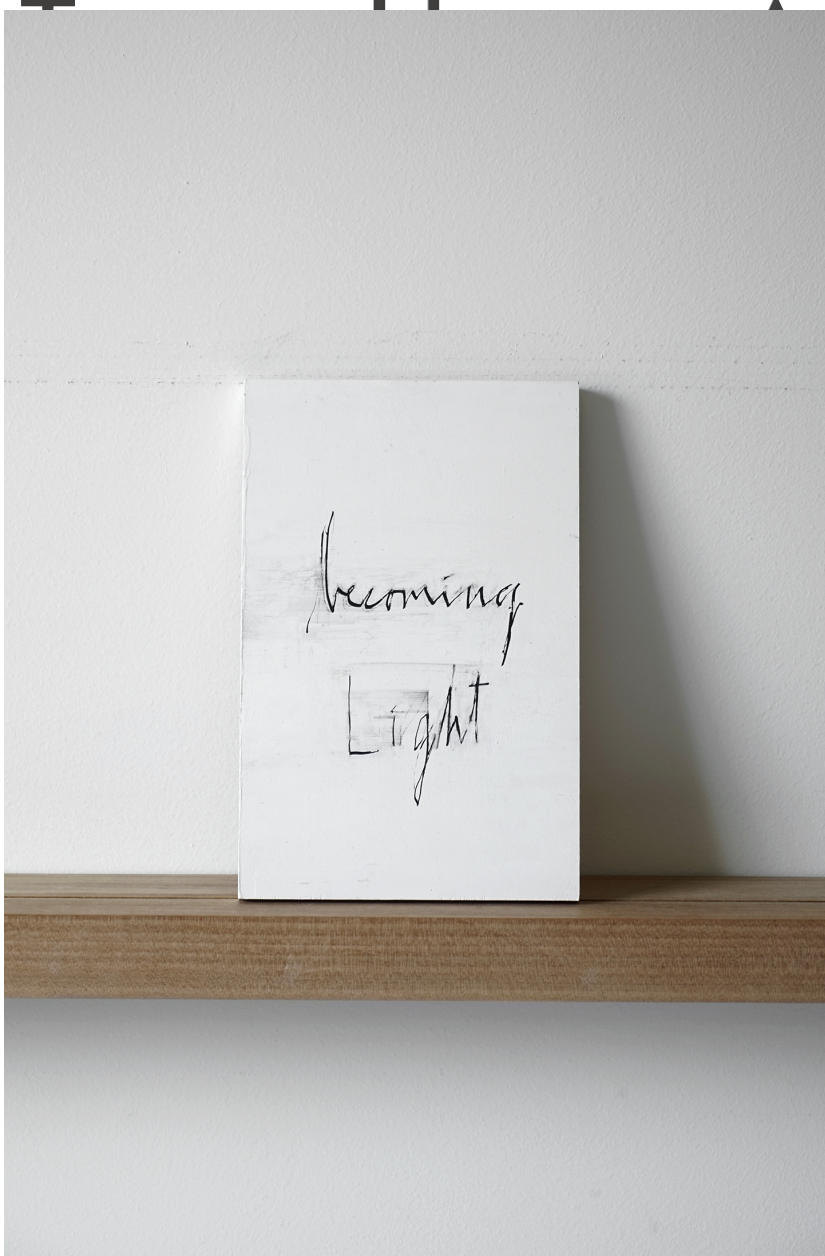 becoming
Light